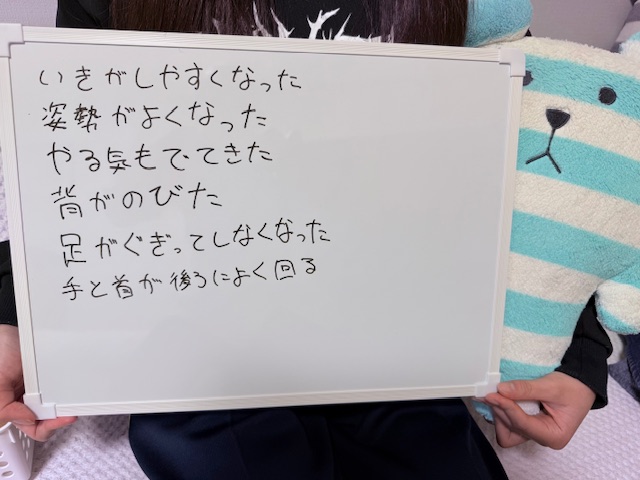 いきがしやすくなった
姿勢がよくなった
やる気もでてきた
背がのびた
足がぐぎってしなくなった
手と首が後ろによく回る